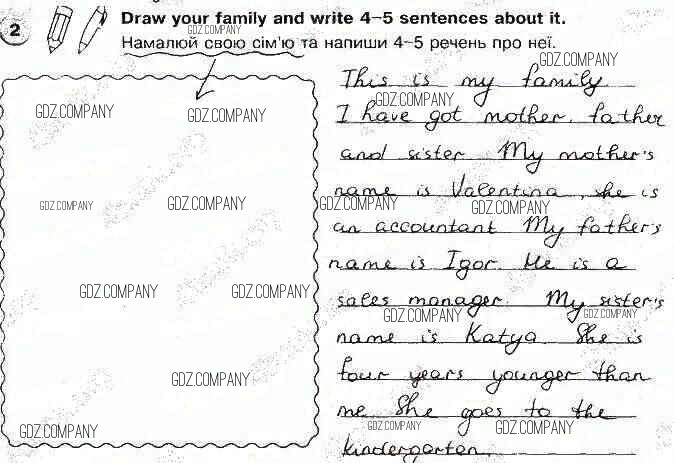 2
Draw your family and write 4–5 sentences about it.
Намалюй свою сім'ю та напиши 4–5 речень про неї.
GDZ.COMPANY
GDZ.COMPANY
This is my family
GDZ.COMPANY
GDZ.COMPANY
GDZ.COMPANY
I have got mother, father
and sister. My mother's
name is Valentina, she is
GDZ.COMPANY
GDZ.COMPANY
GDZ.COMPANY
GDZ.COMPANY
an accountant. My father's
name is Igor. He is a
GDZ.COMPANY
GDZ.COMPANY
sales manager. My sister's
GDZ.COMPANY
GDZ.COMPANY
name is Katya. She is
four years younger than
GDZ.COMPANY
me. She goes to the
GDZ.COMPANY
GDZ.COMPANY
GDZ.COMPANY
kindergarten.